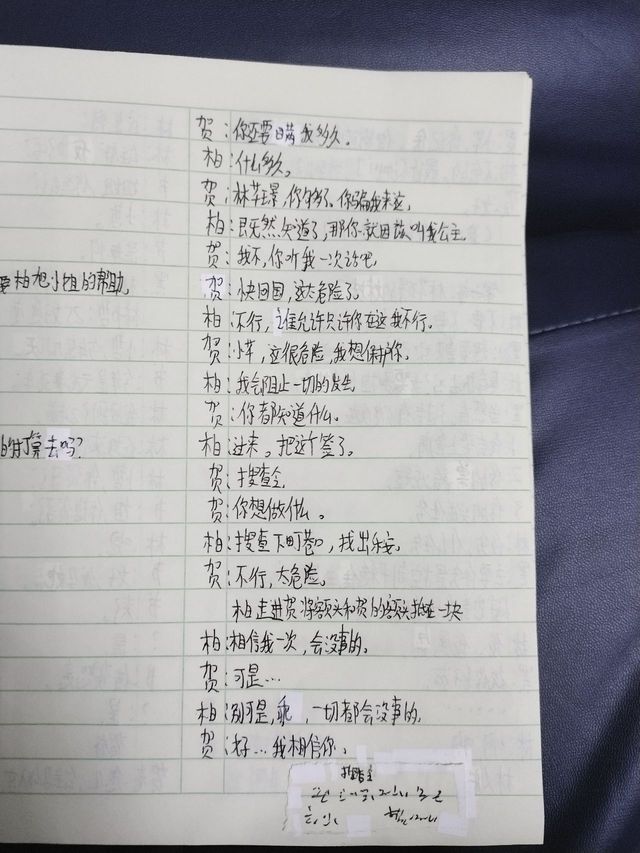 贺：你还要瞒我多久。
柏：什么多久。
贺：林苹璟，你够了。你骗我来这，
柏：既然知道了，那你就因兹叫我公主
贺：我不，你听我一次话吧
要柏旭小姐的帮助。
贺：快回国，这太危险了。
柏：不行，谁允许只许你在这我不行。
贺：小苹，这很危险，我想保护你。
柏：我会阻止一切的发生
贺：你都知道什么。
的打算去吗？
柏：进来。把这个签了。
贺：搜查令
贺：你想做什么。
柏：搜查下町巷口，找出
贺：不行，太危险。
柏走进贺将额头和贺的额头抵在一块
柏：相信我一次，会没事的。
贺：可是…
柏：别可是，乖，一切都会没事的。
贺：好…我相信你。